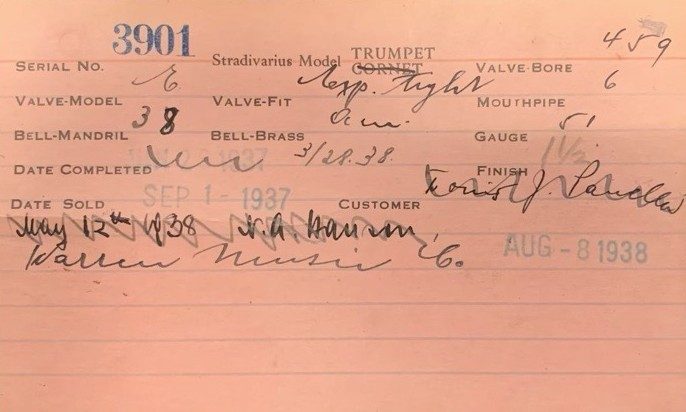 3901 Stradivarius Model TRUMPET 459
SERIAL NO. CORNET VALVE-BORE
E Exp. tight 6
VALVE-MODEL VALVE-FIT MOUTHPIPE
38 Am. 51
BELL-MANDRIL BELL-BRASS GAUGE
1937 3/28.38. 1½
DATE COMPLETED FINISH
SEP 1 - 1937 J.
DATE SOLD CUSTOMER
May 12th 1938 N. A. Hanson,
AUG - 8 1938
Warren Music Co.